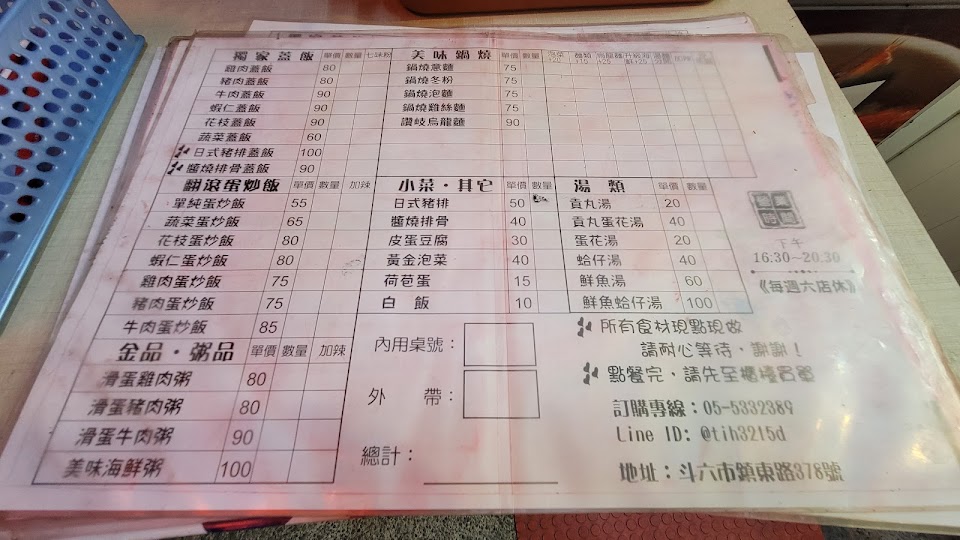 獨家蓋飯 單價 數量 七味粉
雞肉蓋飯 80
豬肉蓋飯 80
牛肉蓋飯 90
蝦仁蓋飯 90
花枝蓋飯 90
蔬菜蓋飯 60
日式豬排蓋飯 100
醬燒排骨蓋飯 90
美味鍋燒 單價 數量
鍋燒意麵 75
鍋燒冬粉 75
鍋燒泡麵 75
鍋燒雞絲麵 75
讚岐烏龍麵 90
翻滾蛋炒飯 單價 數量 加辣
單純蛋炒飯 55
蔬菜蛋炒飯 65
花枝蛋炒飯 80
蝦仁蛋炒飯 80
雞肉蛋炒飯 75
豬肉蛋炒飯 75
牛肉蛋炒飯 85
小菜・其它 單價 數量
日式豬排 50
醬燒排骨 40
皮蛋豆腐 30
黃金泡菜 40
荷苞蛋 15
白飯 10
湯類 單價 數量
貢丸湯 20
貢丸蛋花湯 40
蛋花湯 20
蛤仔湯 40
鮮魚湯 60
鮮魚蛤仔湯 100
下午
16:30~20:30
《每週六店休》
金品・粥品 單價 數量 加辣
滑蛋雞肉粥 80
滑蛋豬肉粥 80
滑蛋牛肉粥 90
美味海鮮粥 100
內用桌號：
外帶：
總計：
所有食材現點現做
請耐心等待，謝謝！
點餐完，請先至櫃檯買單
訂購專線：05-5332389
Line ID: @tih3215d
地址：斗六市鎮東路378號